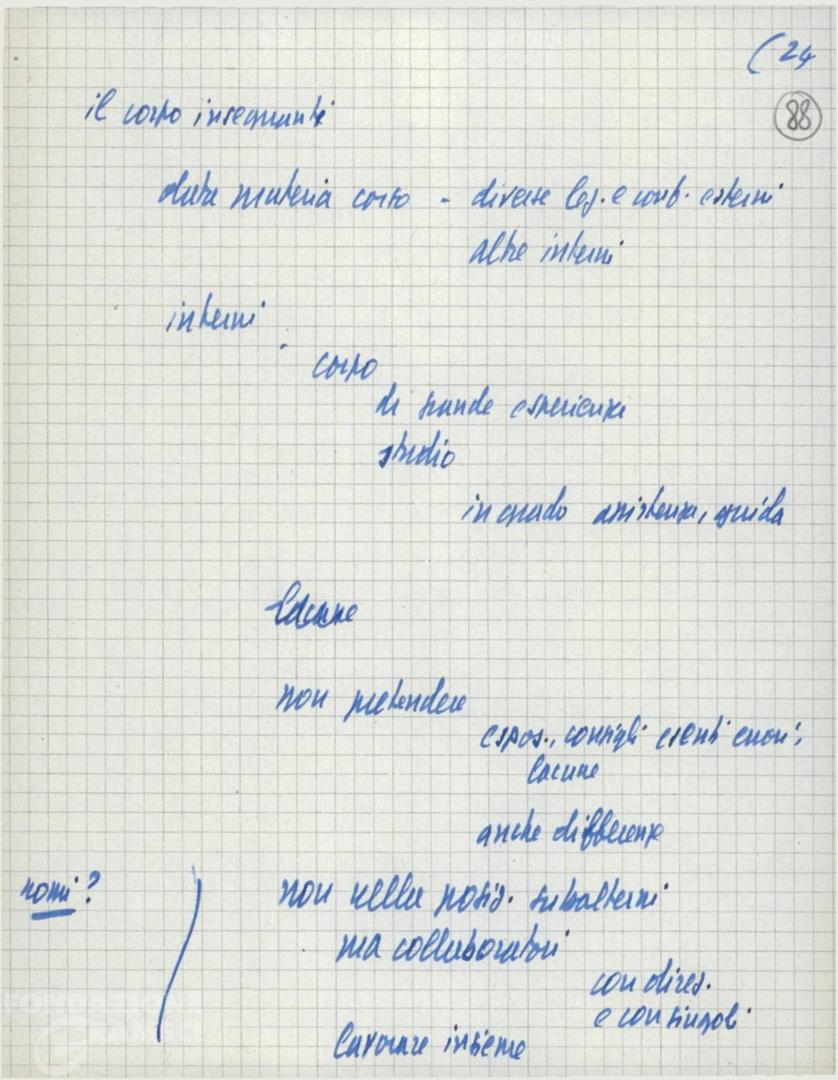 (24
88
il corpo insegnanti
data materia corso - diverse lez. e conf. esterni
altre interni
interni
corpo
di grande esperienza
studio
in grado assistenza, guida
lacune
non pretendere
espos., consigli esenti errori,
lacune
anche differenze
nomi?
non nella posiz. subalterni
ma collaboratori
con direz.
e con singoli
lavorare insieme